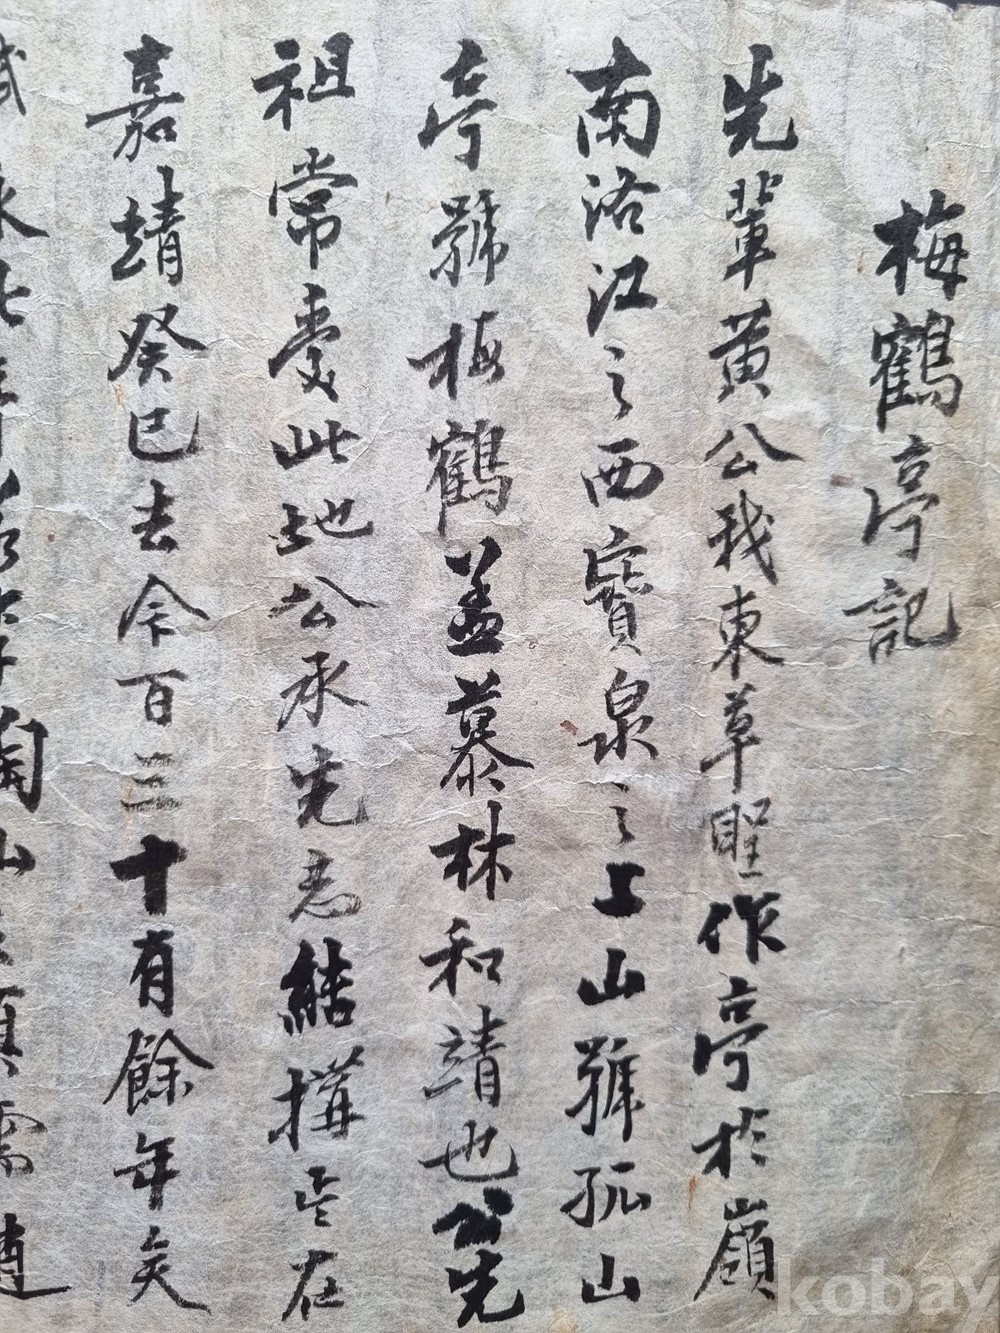 梅鶴亭記
先輩黃公我東草聖作亭於嶺
南洛江之西寶泉之上山號孤山
亭號梅鶴盖慕林和靖也公先
祖常愛此地公承先志結構在
嘉靖癸巳去今百三十有餘年矣
kobay